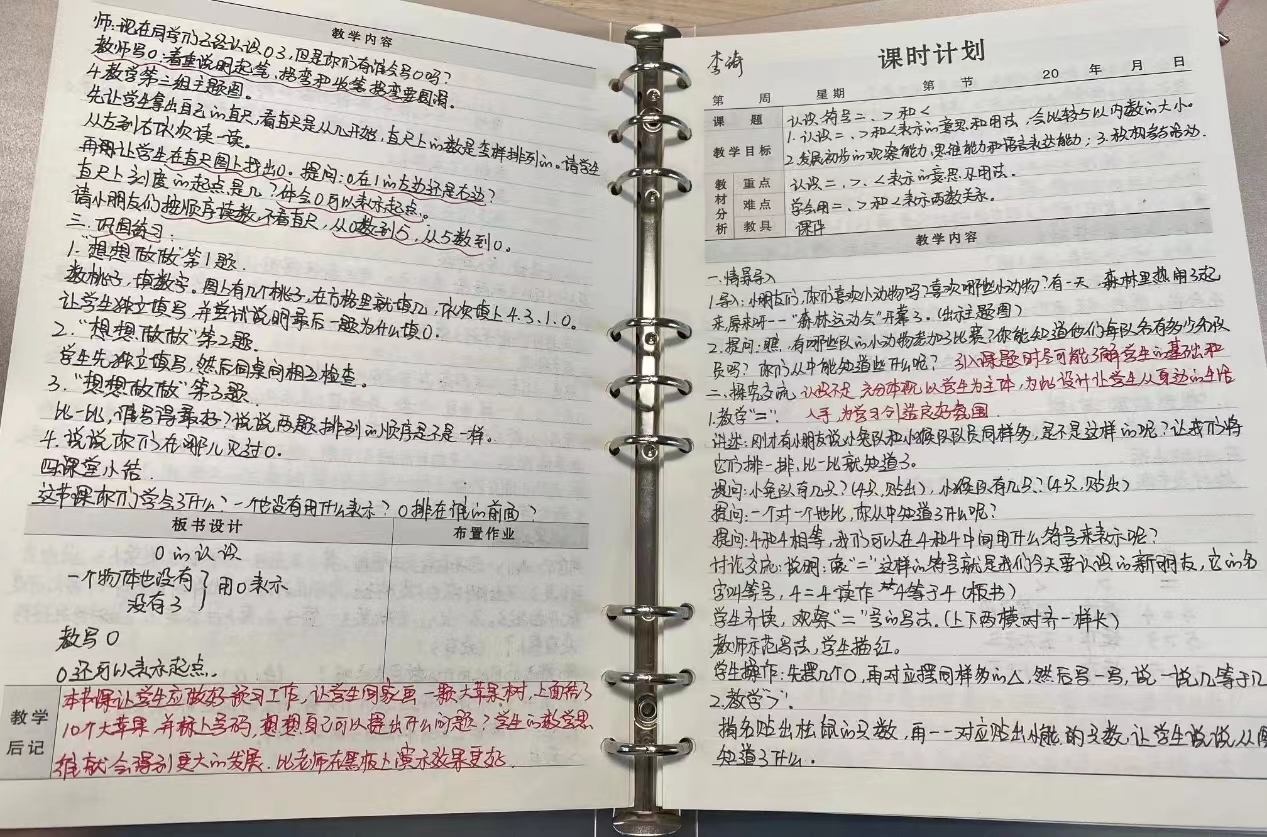 教学内容
师:现在同学们已经认识03,但是你们有谁会写0吗?
教师写0:看重说明起笔,拐弯和收笔拐弯要圆滑。
4.教学第二组主题图。
先让学生拿出自己的直尺,看直尺是从几开始,直尺上的数是怎样排列的。请学生
从左到右依次读一读。
再让学生在直尺图上找出0。提问:0在1的左边还是右边?
直尺上刻度的起点是几?体会0可以表示起点。
请小朋友们按顺序读数,不看直尺,从0数到5,从5数到0。
三.巩固练习:
1."想想做做"第1题.
数桃子,填数字。图上有几个桃子,在方格里就填几,依次填上4.3.1.0。
让学生独立填写,并尝试说明最后一题为什么填0.
2."想想做做"第2题.
学生先独立填写,然后同桌间相互检查。
3."想想做做"第3题.
比一比,谁写得最好?说说两题排列的顺序是不是一样。
4.说说你们在哪儿见过0.
四.课堂小结.
这节课你们学会了什么?一个也没有用什么表示?0排在谁的前面?
板书设计
布置作业
0的认识
一个物体也没有
没有了
用0表示
教写0
0还可以表示起点.
教学后记
本节课让学生应做好预习工作,让学生回家画一颗大苹果树,上面结了
10个大苹果,并标上号码,想想自己可以提出什么问题?学生的数学思
维就会得到更大的发展.比老师在黑板上演示效果更好.
李琦
课时计划
第 周 星期 第 节 20 年 月 日
课 题
认识符号=、>和<
教学目标
1.认识=、>和<表示的意思和用法,会比较5以内数的大小。
2.发展初步的观察能力,思维能力和语言表达能力;3.积极参与活动.
教材分析
重点
认识=、>、<表示的意思及用法.
难点
学会用=、>和<表示两数关系.
教具
课件
教学内容
一.情景导入
1.导入:小朋友们,你们喜欢小动物吗?喜欢哪些小动物?有一天,森林里热闹了起
来,原来呀——"森林运动会"开幕了.(出示主题图)
2.提问:瞧,有哪些队的小动物参加了比赛?你能知道他们每队各有多少个队
员吗?你们从中能知道些什么呢?
引入课题时尽可能了解学生的基础和
二.探究交流
认识不足,充分体现以学生为主体,为此设计让学生从身边的生活
1.教学"="
入手,为学习创造良好氛围.
讲述:刚才有小朋友说小兔队和小猴队队员同样多,是不是这样的呢?让我们将
它们排一排,比一比就知道了。
提问:小兔队有几只?(4只,贴出),小猴队有几只?(4只,贴出)
提问:一个对一个地比,你从中知道了什么呢?
提问:4和4相等,我们可以在4和4中间用什么符号来表示呢?
讨论交流:说明:像"="这样的符号就是我们今天要认识的新朋友,它的名
字叫等号,4=4读作"4等于4"(板书)
学生齐读,观察"="号的写法.(上下两横对齐一样长)
教师示范写法,学生描红。
学生操作:先摆几个O,再对应摆同样多的△,然后写一写,说一说几等于几
2.教学">".
指名贴出松鼠的只数,再一一对应贴出小熊的只数,让学生说说,从图
知道了什么。